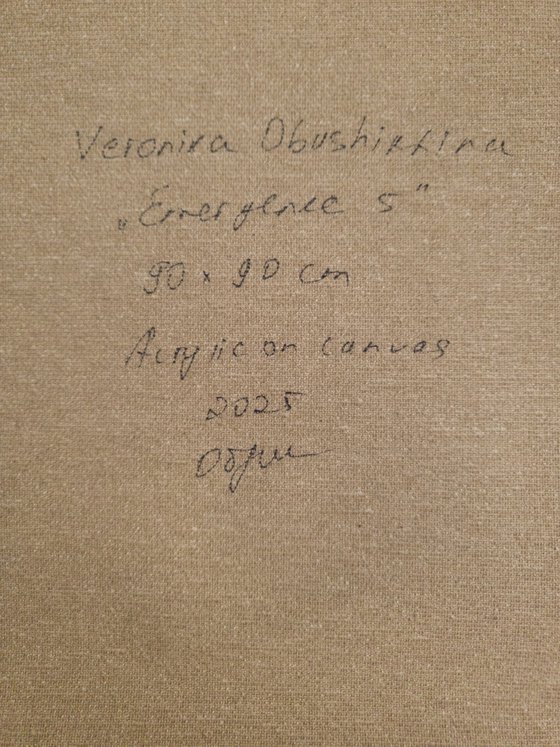 Veronika Obushikhina
„Emergence 5”
90 × 90 cm
Acrylic on canvas
2025